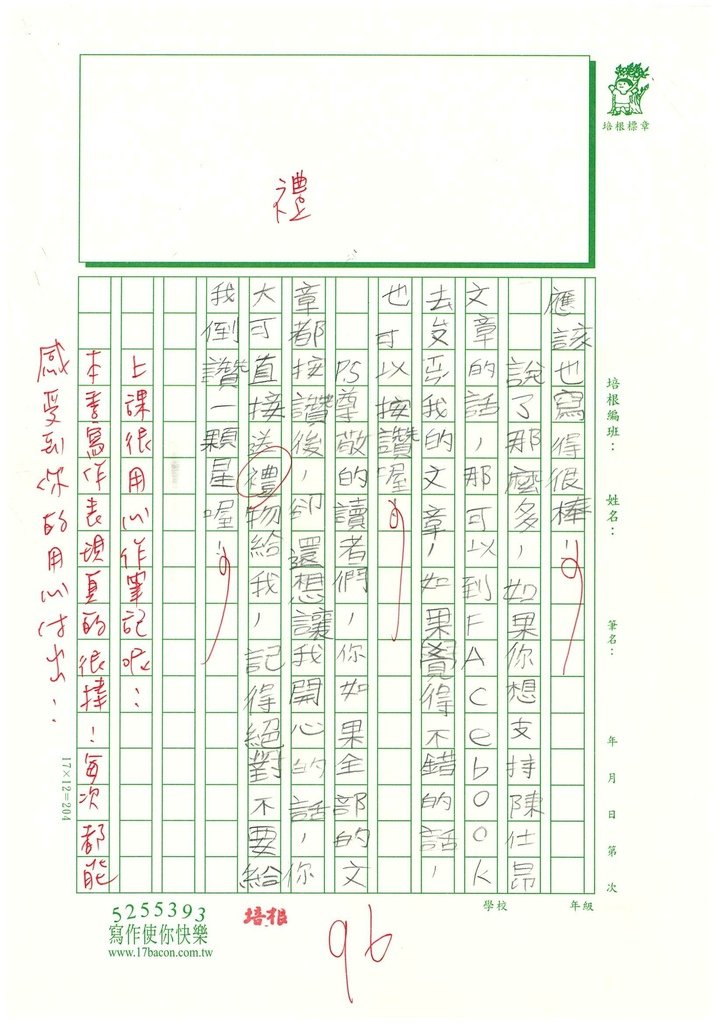 培根標章
禮
培根編班：
姓名：
筆名：
年 月 日 第 次
應該也寫得很棒!!
說了那麼多，如果你想支持陳仕昂
文章的話，那可以到FAcebook
去歺我的文章，如果覺得不錯的話，
也可以按讚喔!
PS尊敬的讀者們，你如果全部的文
章都按讚後，卻還想讓我開心的話，你
大可直接送禮物給我，記得絕對不要給
我倒讚一顆星喔!
上課很用心作筆記呢！
本季寫作表現真的很棒！每次都能
感受到你的用心付出！
17×12=204
學校
年級
5255393
寫作使你快樂
www.17bacon.com.tw
培根
96